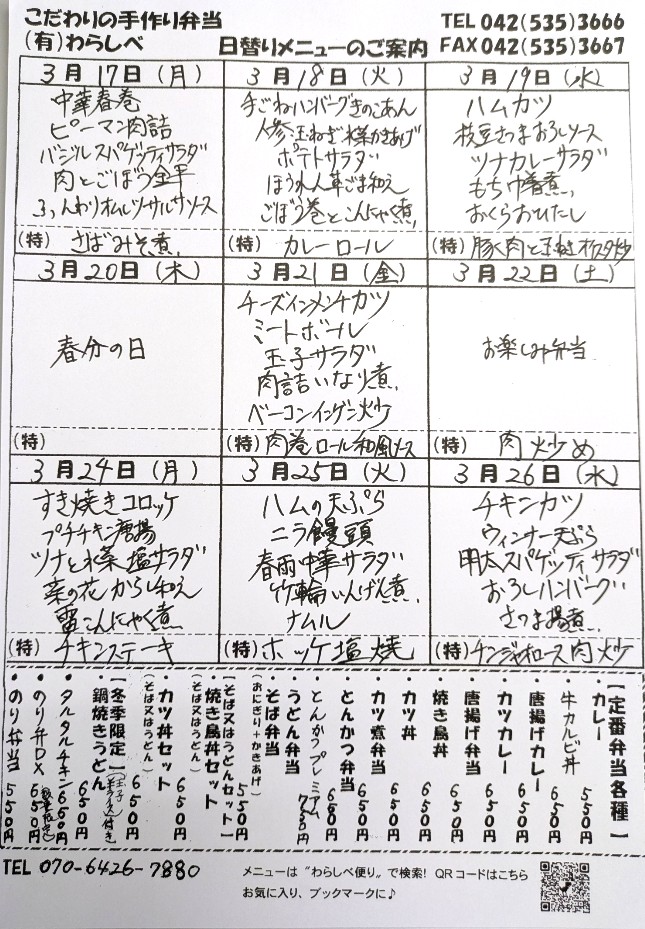 こだわりの手作り弁当
(有)わらしべ
日替りメニューのご案内
TEL 042(535)3666
FAX 042(535)3667
3月17日(月)
中華春巻
ピーマン肉詰
バジルスパゲッティサラダ
肉とごぼう金平
ふんわりオムレツサルサソース
(特) さばみそ煮
3月18日(火)
手ごねハンバーグきのこあん
人参玉ねぎ水菜かきあげ
ポテトサラダ
ほうれん草ごま和え
ごぼう巻とこんにゃく煮
(特) カレーロール
3月19日(水)
ハムカツ
枝豆さつまおろしソース
ツナカレーサラダ
もち巾着煮
おくらおひたし
(特) 豚肉と玉ねぎ
3月20日(木)
春分の日
(特)
3月21日(金)
チーズインメンチカツ
ミートボール
玉子サラダ
肉詰いなり煮
ベーコンインゲン炒
(特) 肉巻ロール和風ソース
3月22日(土)
お楽しみ弁当
(特) 肉炒め
3月24日(月)
すき焼きコロッケ
プチチキン唐揚
ツナと水菜塩サラダ
菜の花からし和え
雷こんにゃく煮
(特) チキンステーキ
3月25日(火)
ハムの天ぷら
ニラ饅頭
春雨中華サラダ
竹輪いんげん煮
ナムル
(特) ホッケ塩焼
3月26日(水)
チキンカツ
ウィンナー天ぷら
明太スパゲッティサラダ
おろしハンバーグ
さつま揚煮
(特) チンジャオロース肉炒
【定番弁当各種】
カレー 550円
牛カルビ丼 650円
唐揚げカレー 650円
カツカレー 650円
唐揚げ弁当 650円
焼き鳥丼 650円
カツ丼 650円
カツ煮弁当 650円
とんかつ弁当 650円
とんかつプレミアム 750円
うどん弁当
そば弁当 550円
(おにぎり+かきあげ)
【そば又はうどんセット】
焼き鳥丼セット 650円
(そば又はうどん)
カツ丼セット 650円
(そば又はうどん)
【冬季限定】
鍋焼きうどん 650円
タルタルチキン 650円
のり弁DX 650円
のり弁当 550円
TEL 070-6426-7880
メニューは "わらしべ便り" で検索! QRコードはこちら
お気に入り、ブックマークに♪